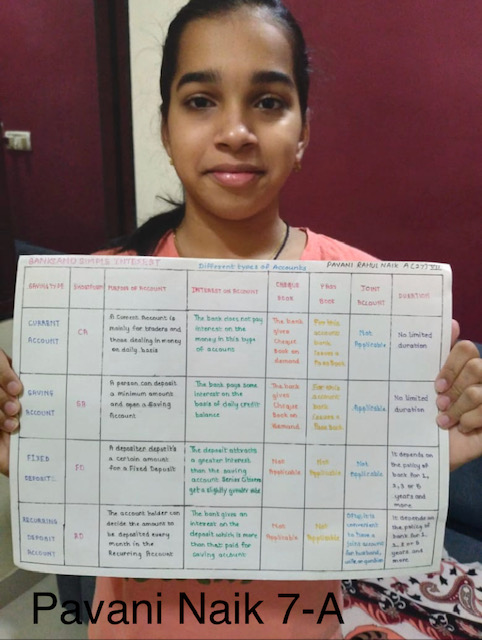 BANKING SIMPLE INTEREST
Different types of Accounts
PAVANI RAHUL NAIK A (27) VII
SHORTFORM
NATURE OF ACCOUNT
INTEREST ON ACCOUNT
CHEQUE
BOOK
PASS
BOOK
JOINT
ACCOUNT
DURATION
CURRENT
ACCOUNT
CA
A Current Account is
mainly for traders and
those dealing in money
on daily basis
The bank does not pay
interest on the
money in this type
of account
The bank
gives
Cheque
Book on
demand.
For this
account
bank
issues a
Pass Book
Not
Applicable
No limited
duration
SAVING
ACCOUNT
SB
A person can deposit
a minimum amount
and open a Saving
Account
The bank pays some
interest on the
basis of daily credit
balance
The bank
gives
Cheque
Book on
demand.
For this
account
bank
issues a
Pass Book
Applicable
No limited
duration
FIXED
DEPOSIT
FD
A depositer deposits
a certain amount
for a Fixed Deposit
The deposit attracts
a greater interest
than the saving
account. Senior Citizens
get a slightly greater rate
Not
Applicable
Not
Applicable
Not
Applicable
It depends on
the policy of
bank for 1,
2, 3 or 5
years and
more
RECURRING
DEPOSIT
ACCOUNT
RD
The account holder can
decide the amount to
be deposited every
month in the
Recurring Account
The bank gives an
interest on the
deposit which is more
than that paid for
saving account
Not
Applicable
Not
Applicable
convenient
to have a
joint account
for husband,
wife or guardian
It depends on
the policy of
bank for 1,
2, 3 or 5
years and
more
Pavani Naik 7-A